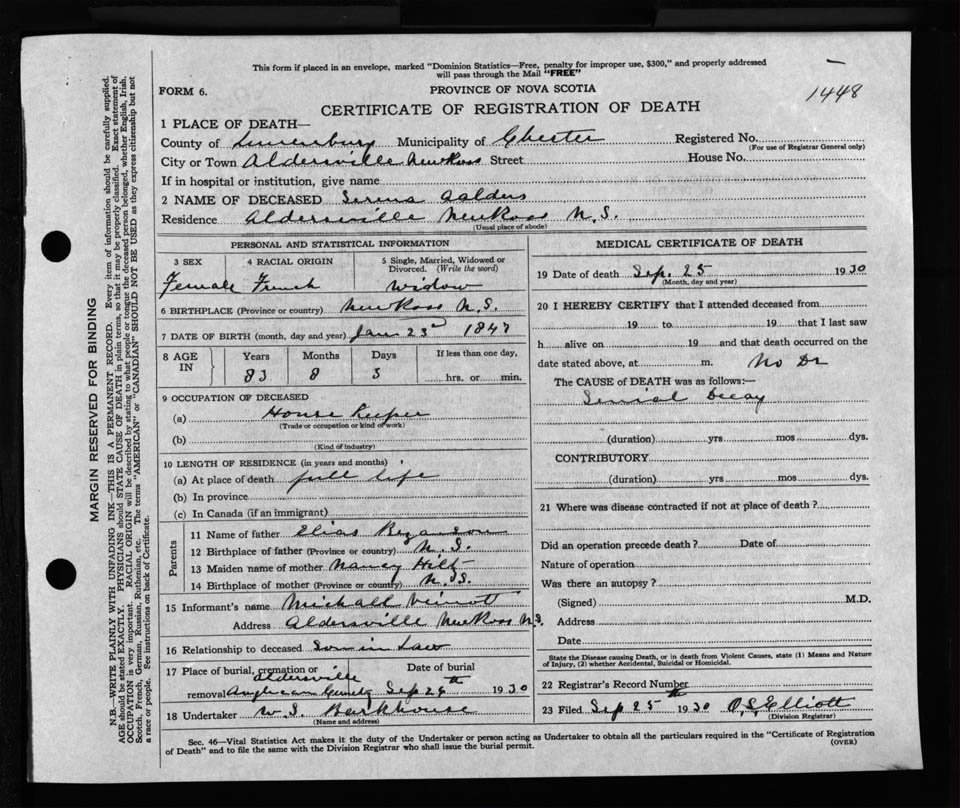 This form if placed in an envelope, marked "Dominion Statistics—Free, penalty for improper use, $300," and properly addressed
will pass through the Mail "FREE"
FORM 6.
PROVINCE OF NOVA SCOTIA
1448
CERTIFICATE OF REGISTRATION OF DEATH
1 PLACE OF DEATH—
County of Lunenburg Municipality of Chester Registered No.
(For use of Registrar General only)
City or Town Aldersville New Ross Street House No.
If in hospital or institution, give name
2 NAME OF DECEASED Serena Aalders
Residence Aldersville New Ross N.S.
(Usual place of abode)
PERSONAL AND STATISTICAL INFORMATION
3 SEX 4 RACIAL ORIGIN 5 Single, Married, Widowed or Divorced. (Write the word)
Female French Widow
6 BIRTHPLACE (Province or country) New Ross N.S.
7 DATE OF BIRTH (month, day and year) Jan 23d 1847
8 AGE IN Years Months Days If less than one day,
83 8 3 hrs. or min.
9 OCCUPATION OF DECEASED
(a) House Keeper
(Trade or occupation or kind of work)
(b)
(Kind of industry)
10 LENGTH OF RESIDENCE (in years and months)
(a) At place of death full life
(b) In province
(c) In Canada (if an immigrant)
Parents
11 Name of father Elias Bezanson
12 Birthplace of father (Province or country) N.S.
13 Maiden name of mother Nancy Hilt
14 Birthplace of mother (Province or country) N.S.
15 Informant's name Michall Veinott
Address Aldersville New Ross N.S.
16 Relationship to deceased Son in Law
17 Place of burial, cremation or removal Aldersville Anglican Cemety Date of burial Sep 26th 1930
18 Undertaker W. S. Barkhouse
(Name and address)
MEDICAL CERTIFICATE OF DEATH
19 Date of death Sep. 25 1930
(Month, day and year)
20 I HEREBY CERTIFY that I attended deceased from
19 to 19 that I last saw
h alive on 19 and that death occurred on the
date stated above, at m. No Dr
The CAUSE of DEATH was as follows:—
Senial Decay
(duration) yrs mos dys.
CONTRIBUTORY
(duration) yrs mos dys.
21 Where was disease contracted if not at place of death?
Did an operation precede death? Date of
Nature of operation
Was there an autopsy?
(Signed) M.D.
Address
Date
State the Disease causing Death, or in death from Violent Causes, state (1) Means and Nature
of Injury, (2) whether Accidental, Suicidal or Homicidal.
22 Registrar's Record Number
23 Filed Sep 25th 1930 O.S. Elliott
(Division Registrar)
Sec. 46—Vital Statistics Act makes it the duty of the Undertaker or person acting as Undertaker to obtain all the particulars required in the "Certificate of Registration
of Death" and to file the same with the Division Registrar who shall issue the burial permit.
(OVER)
MARGIN RESERVED FOR BINDING
N.B.—WRITE PLAINLY WITH UNFADING INK—THIS IS A PERMANENT RECORD. Every item of information should be carefully supplied.
AGE should be stated EXACTLY. PHYSICIANS should STATE CAUSE OF DEATH in plain terms, so that it may be properly classified. Exact statement of
OCCUPATION is very important. RACIAL ORIGIN will be described by stating to what people or tongue the deceased person belonged, whether English, Irish,
Scotch, French, German, Russian, Ruthenian, etc. The terms "AMERICAN" or "CANADIAN" SHOULD NOT BE USED as they express citizenship but not
a race or people. See instructions on back of Certificate.